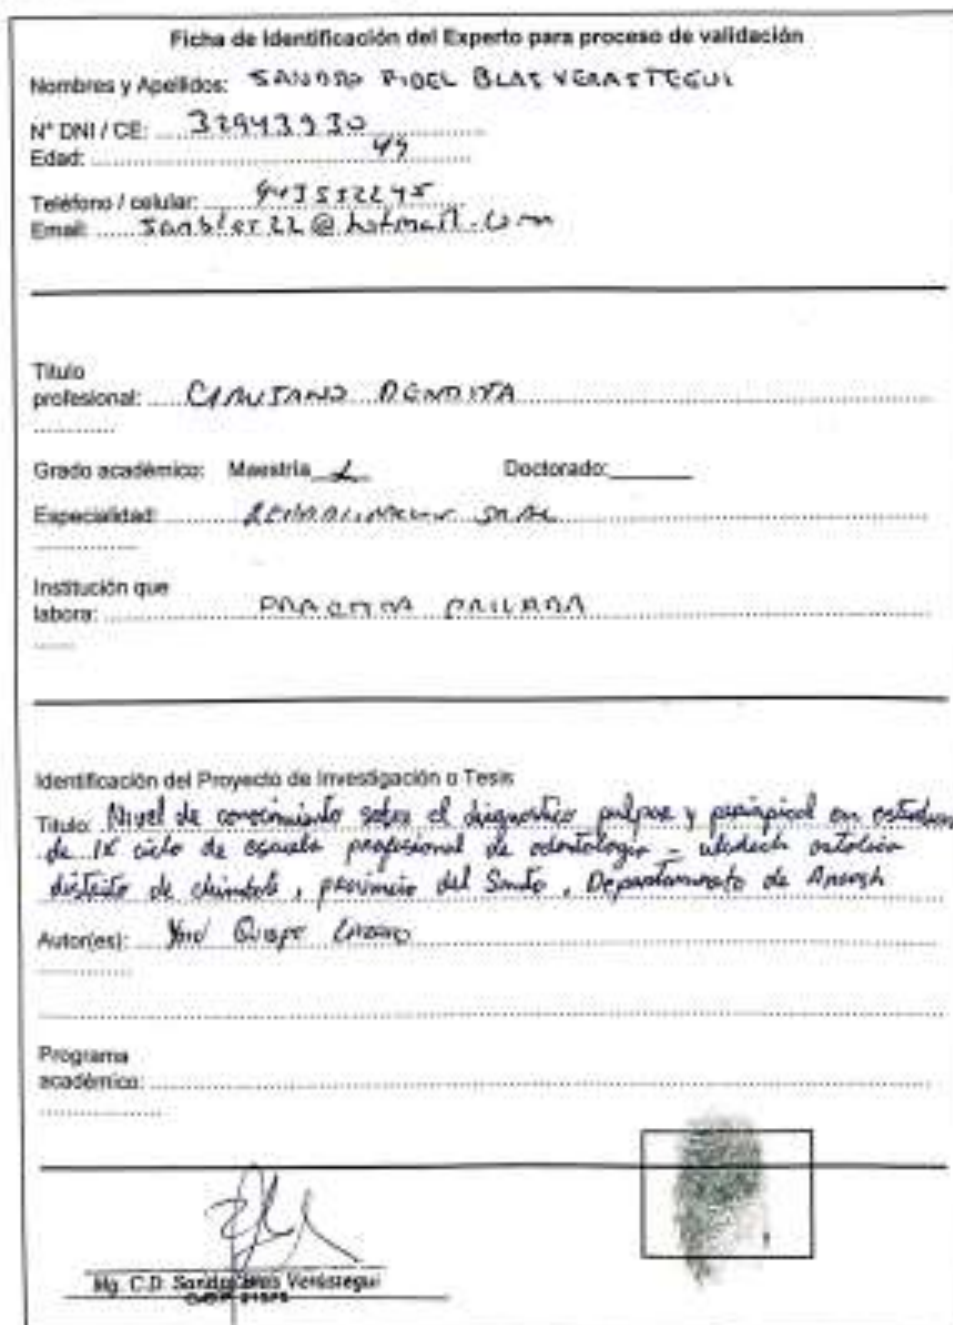 Ficha de Identificación del Experto para proceso de validación
Nombres y Apellidos: SANDRO FIDEL BLAS VERASTEGUI
N° DNI / CE: 32943930
Edad: 49
Teléfono / celular:
Email: @hotmail.com
Título
profesional: CIRUJANO DENTISTA
Grado académico: Maestría Doctorado:
Especialidad:
Institución que
labora: PRACTICA PRIVADA
Identificación del Proyecto de Investigación o Tesis
Título: Nivel de conocimiento sobre el diagnostico pulpar y periapical en
de IX ciclo de escuela profesional de odontologia - uladech
distrito de chimbote, provincia del Santa, Departamento de Ancash
Autor(es): Quispe
Programa
académico:
Mg. C.D. Sandro Blas Verástegui